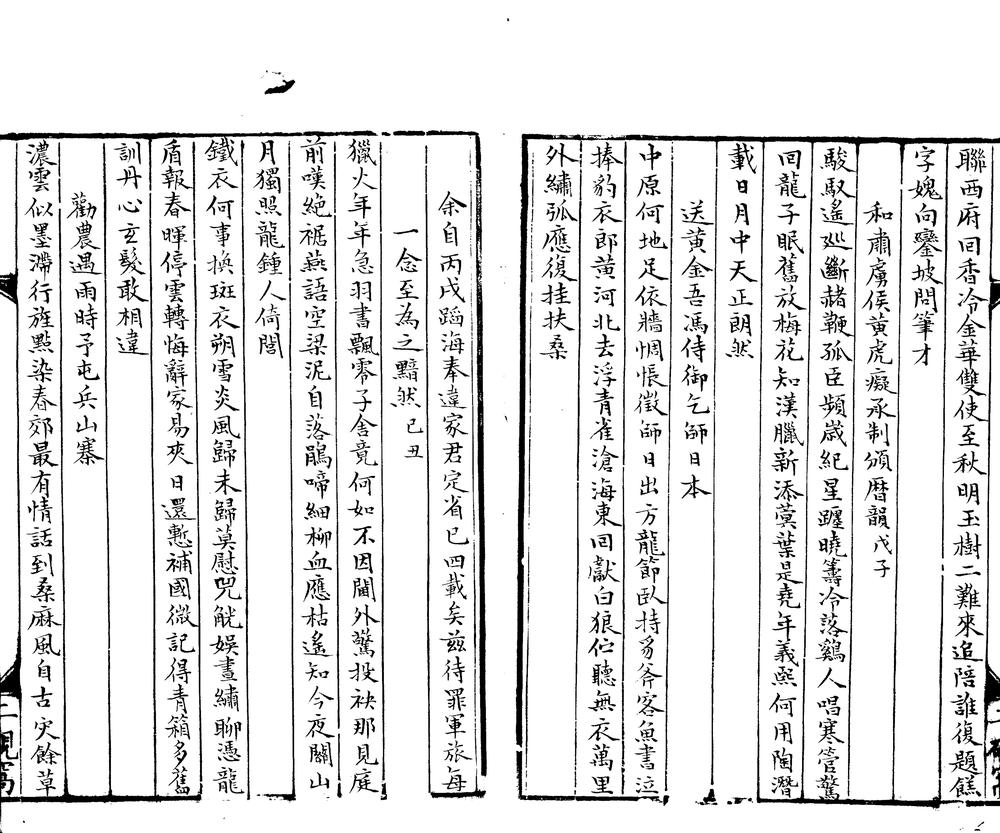 聯西府回香冷金華雙使至秋明玉樹二難來追陪誰復題餻
字媿向鑾坡問筆才
和肅虜侯黃虎癡承制頒曆韻戊子
駿馭遙廵斷赭鞭孤臣頻歲紀星躔曉籌冷落鷄人唱寒管驚
回龍子眠舊放梅花知漢臘新添蓂葉是堯年義熙何用陶潛
載日月中天正朗然
送黃金吾馮侍御乞師日本
中原何地足依牆惆悵徵師日出方龍節臥持豸斧客魚書泣
捧豹衣郎黃河北去浮青雀滄海東回獻白狼伫聽無衣萬里
外繡弧應復挂扶桑
余自丙戌蹈海奉違家君定省已四載矣兹待罪軍旅每
一念至為之黯然己丑
獵火年年急羽書飄零子舍竟何如不因閫外驚投袂那見庭
前嘆絕裾燕語空梁泥自落鵑啼細柳血應枯遙知今夜關山
月獨照龍鍾人倚閭
鐵衣何事換斑衣朔雪炎風歸未歸莫慰兕觥娛晝繡聊憑龍
盾報春暉停雲轉悔辭家易夾日還慙補國微記得青箱多舊
訓丹心玄髮敢相違
勸農遇雨時予屯兵山寨
濃雲似墨滯行旌點染春郊最有情話到桑麻風自古灾餘草